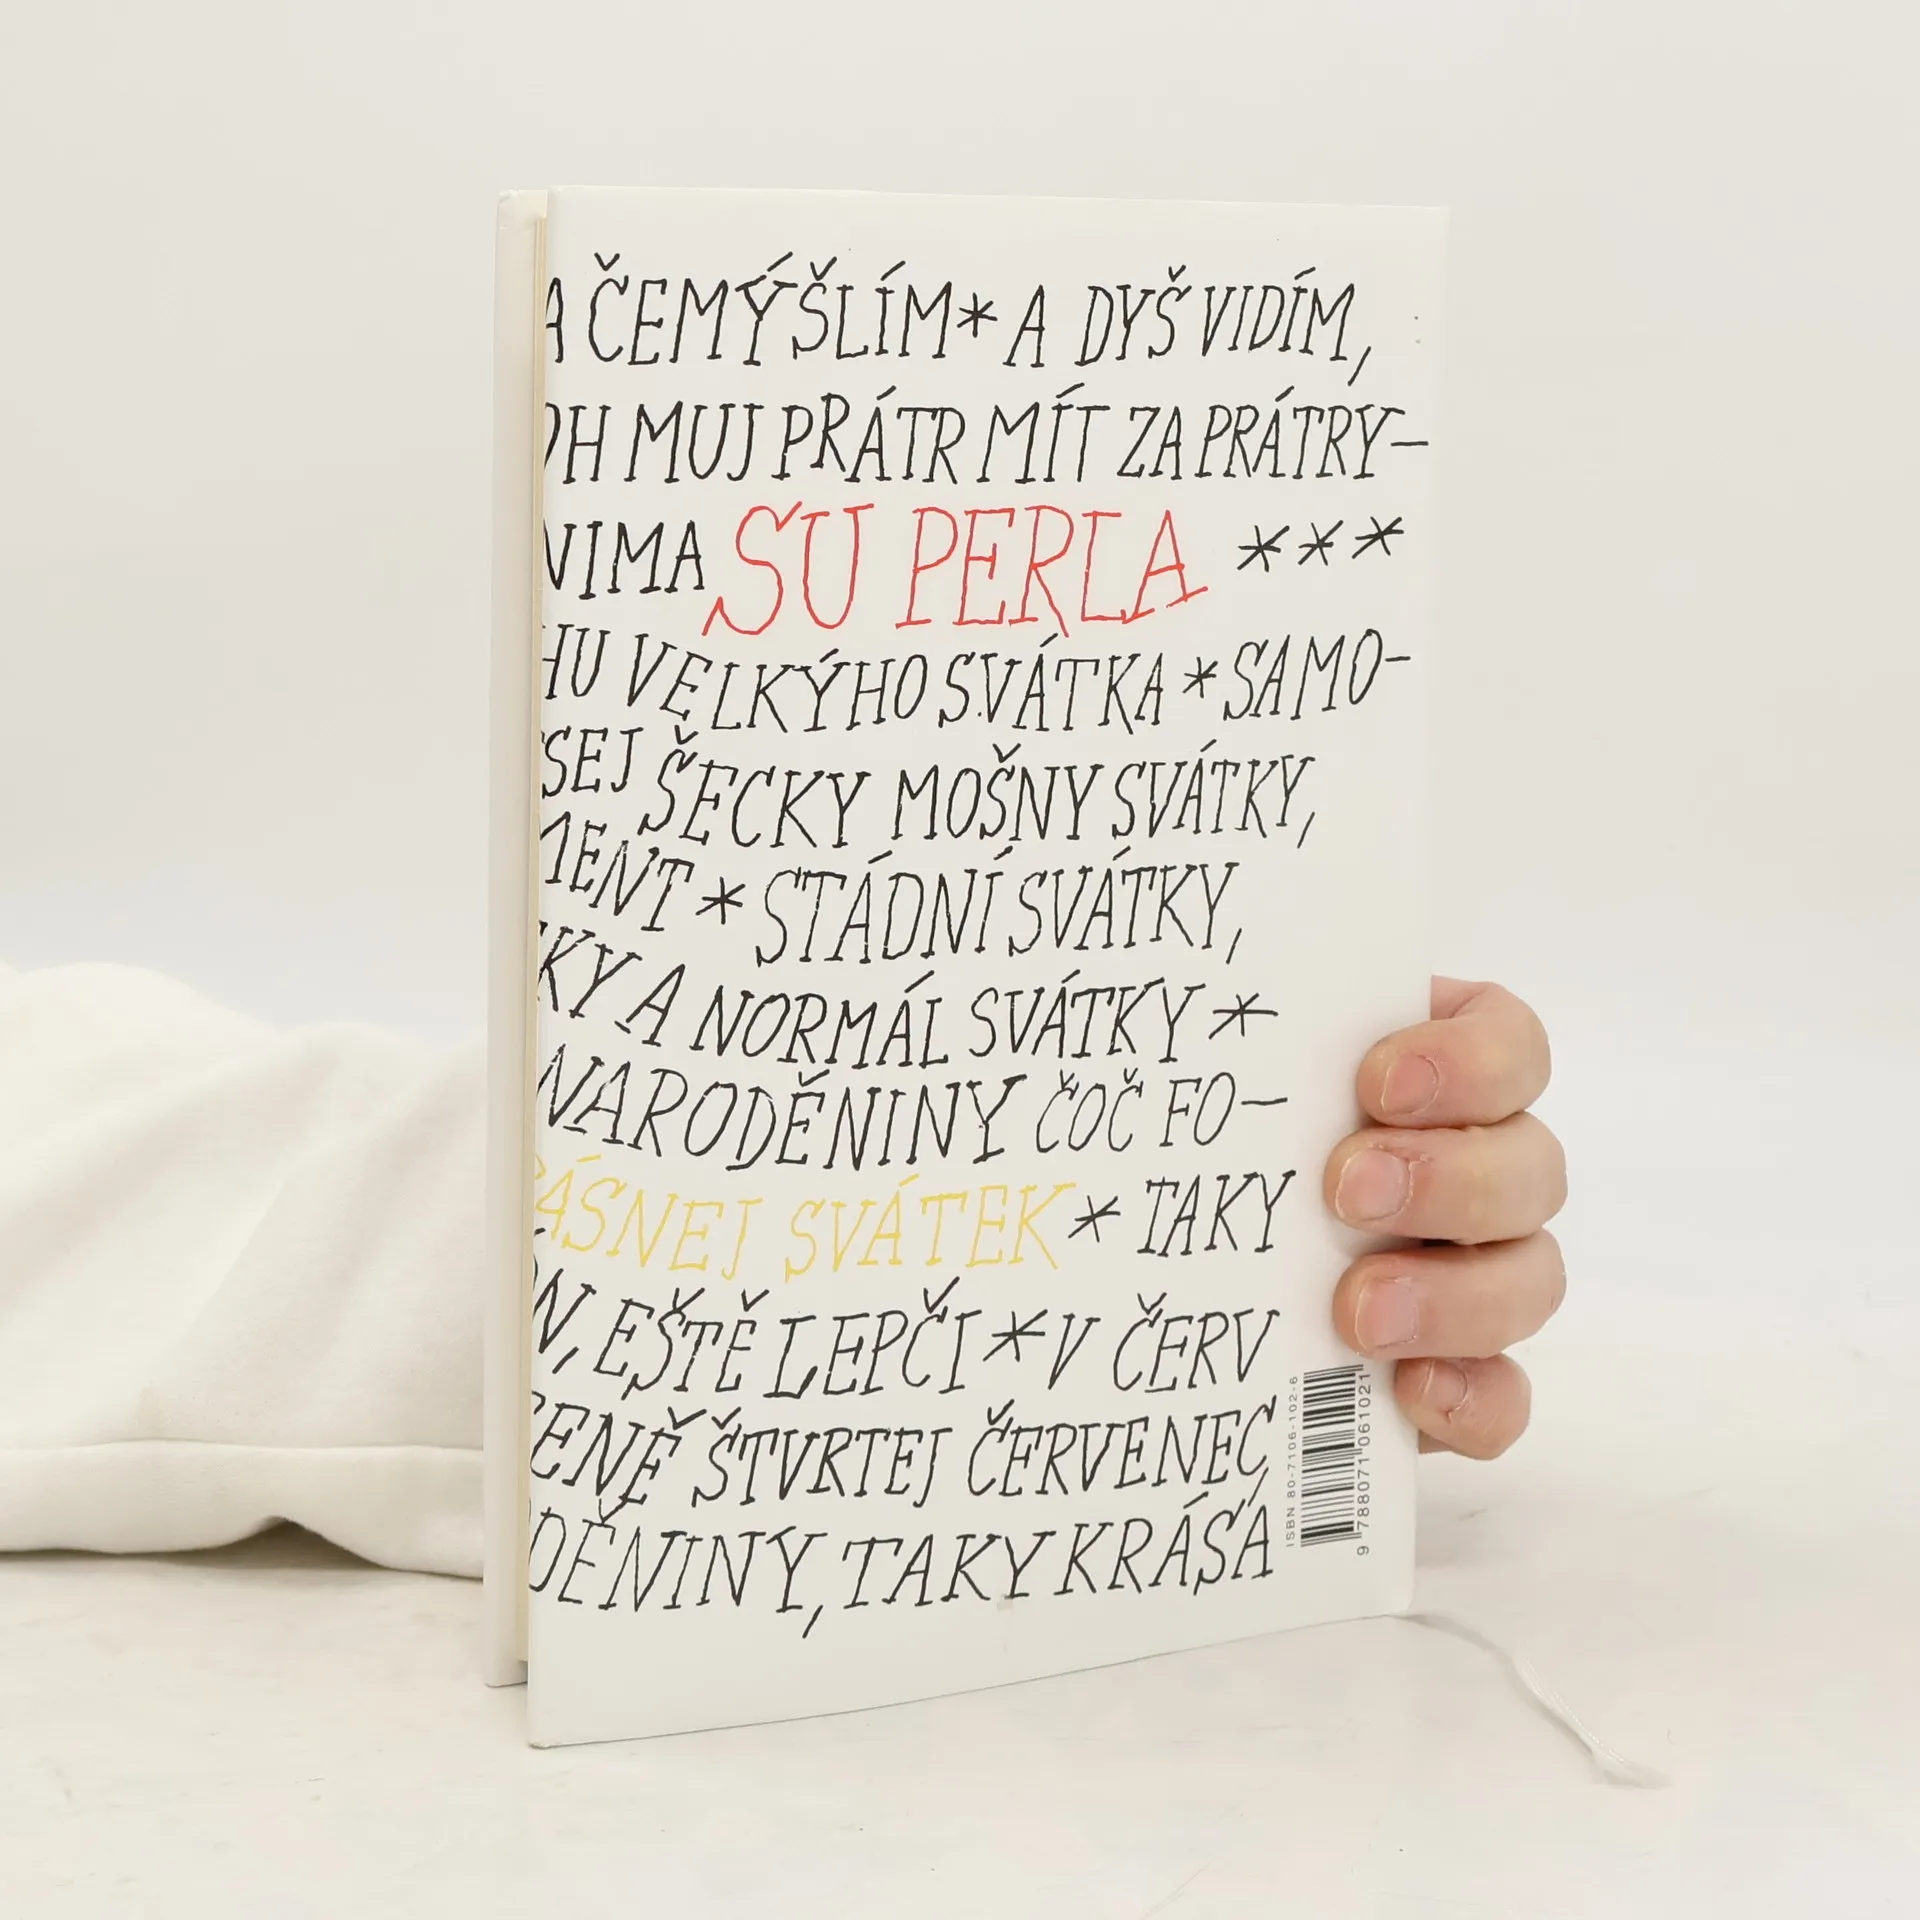 A ČEMÝŠLÍM * A DYŠ VIDÍM,
OH MUJ PŘÁTR MÍT ZA PRÁTRY-
NIMA SU PERLA ***
HU VELKÝHO SVÁTKA * SAMO-
SEJ ŠECKY MOŠNY SVÁTKY,
MENT * STÁDNÍ SVÁTKY,
KY A NORMÁL SVÁTKY *
NARODĚNINY ČOČ FO-
ÁSNEJ SVÁTEK * TAKY
N, EŠTĚ LEPČI * V ČERV
ENĚ ŠTVRTEJ ČERVENEC,
DĚNINY, TAKY KRÁSA
ISBN 80-7106-102-6
9 788071 061021